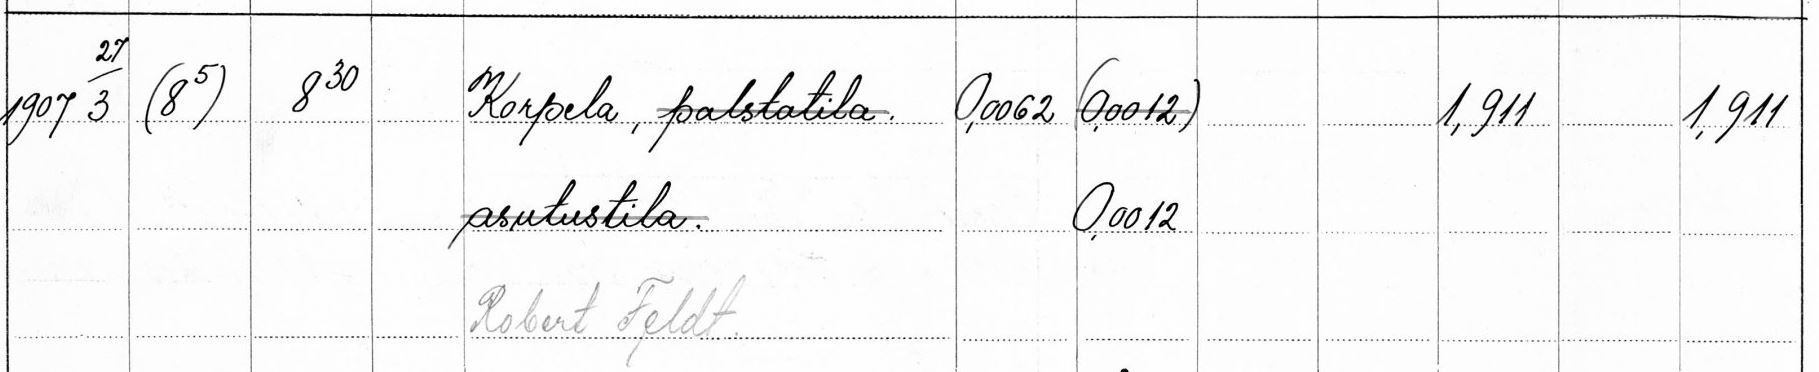 1907 27/3 (8⁵) 8³⁰ Korpela, palstatila. 0,0062 (0,0012) 1,911 1,911
asutustila. 0,0012
Robert Feldt.